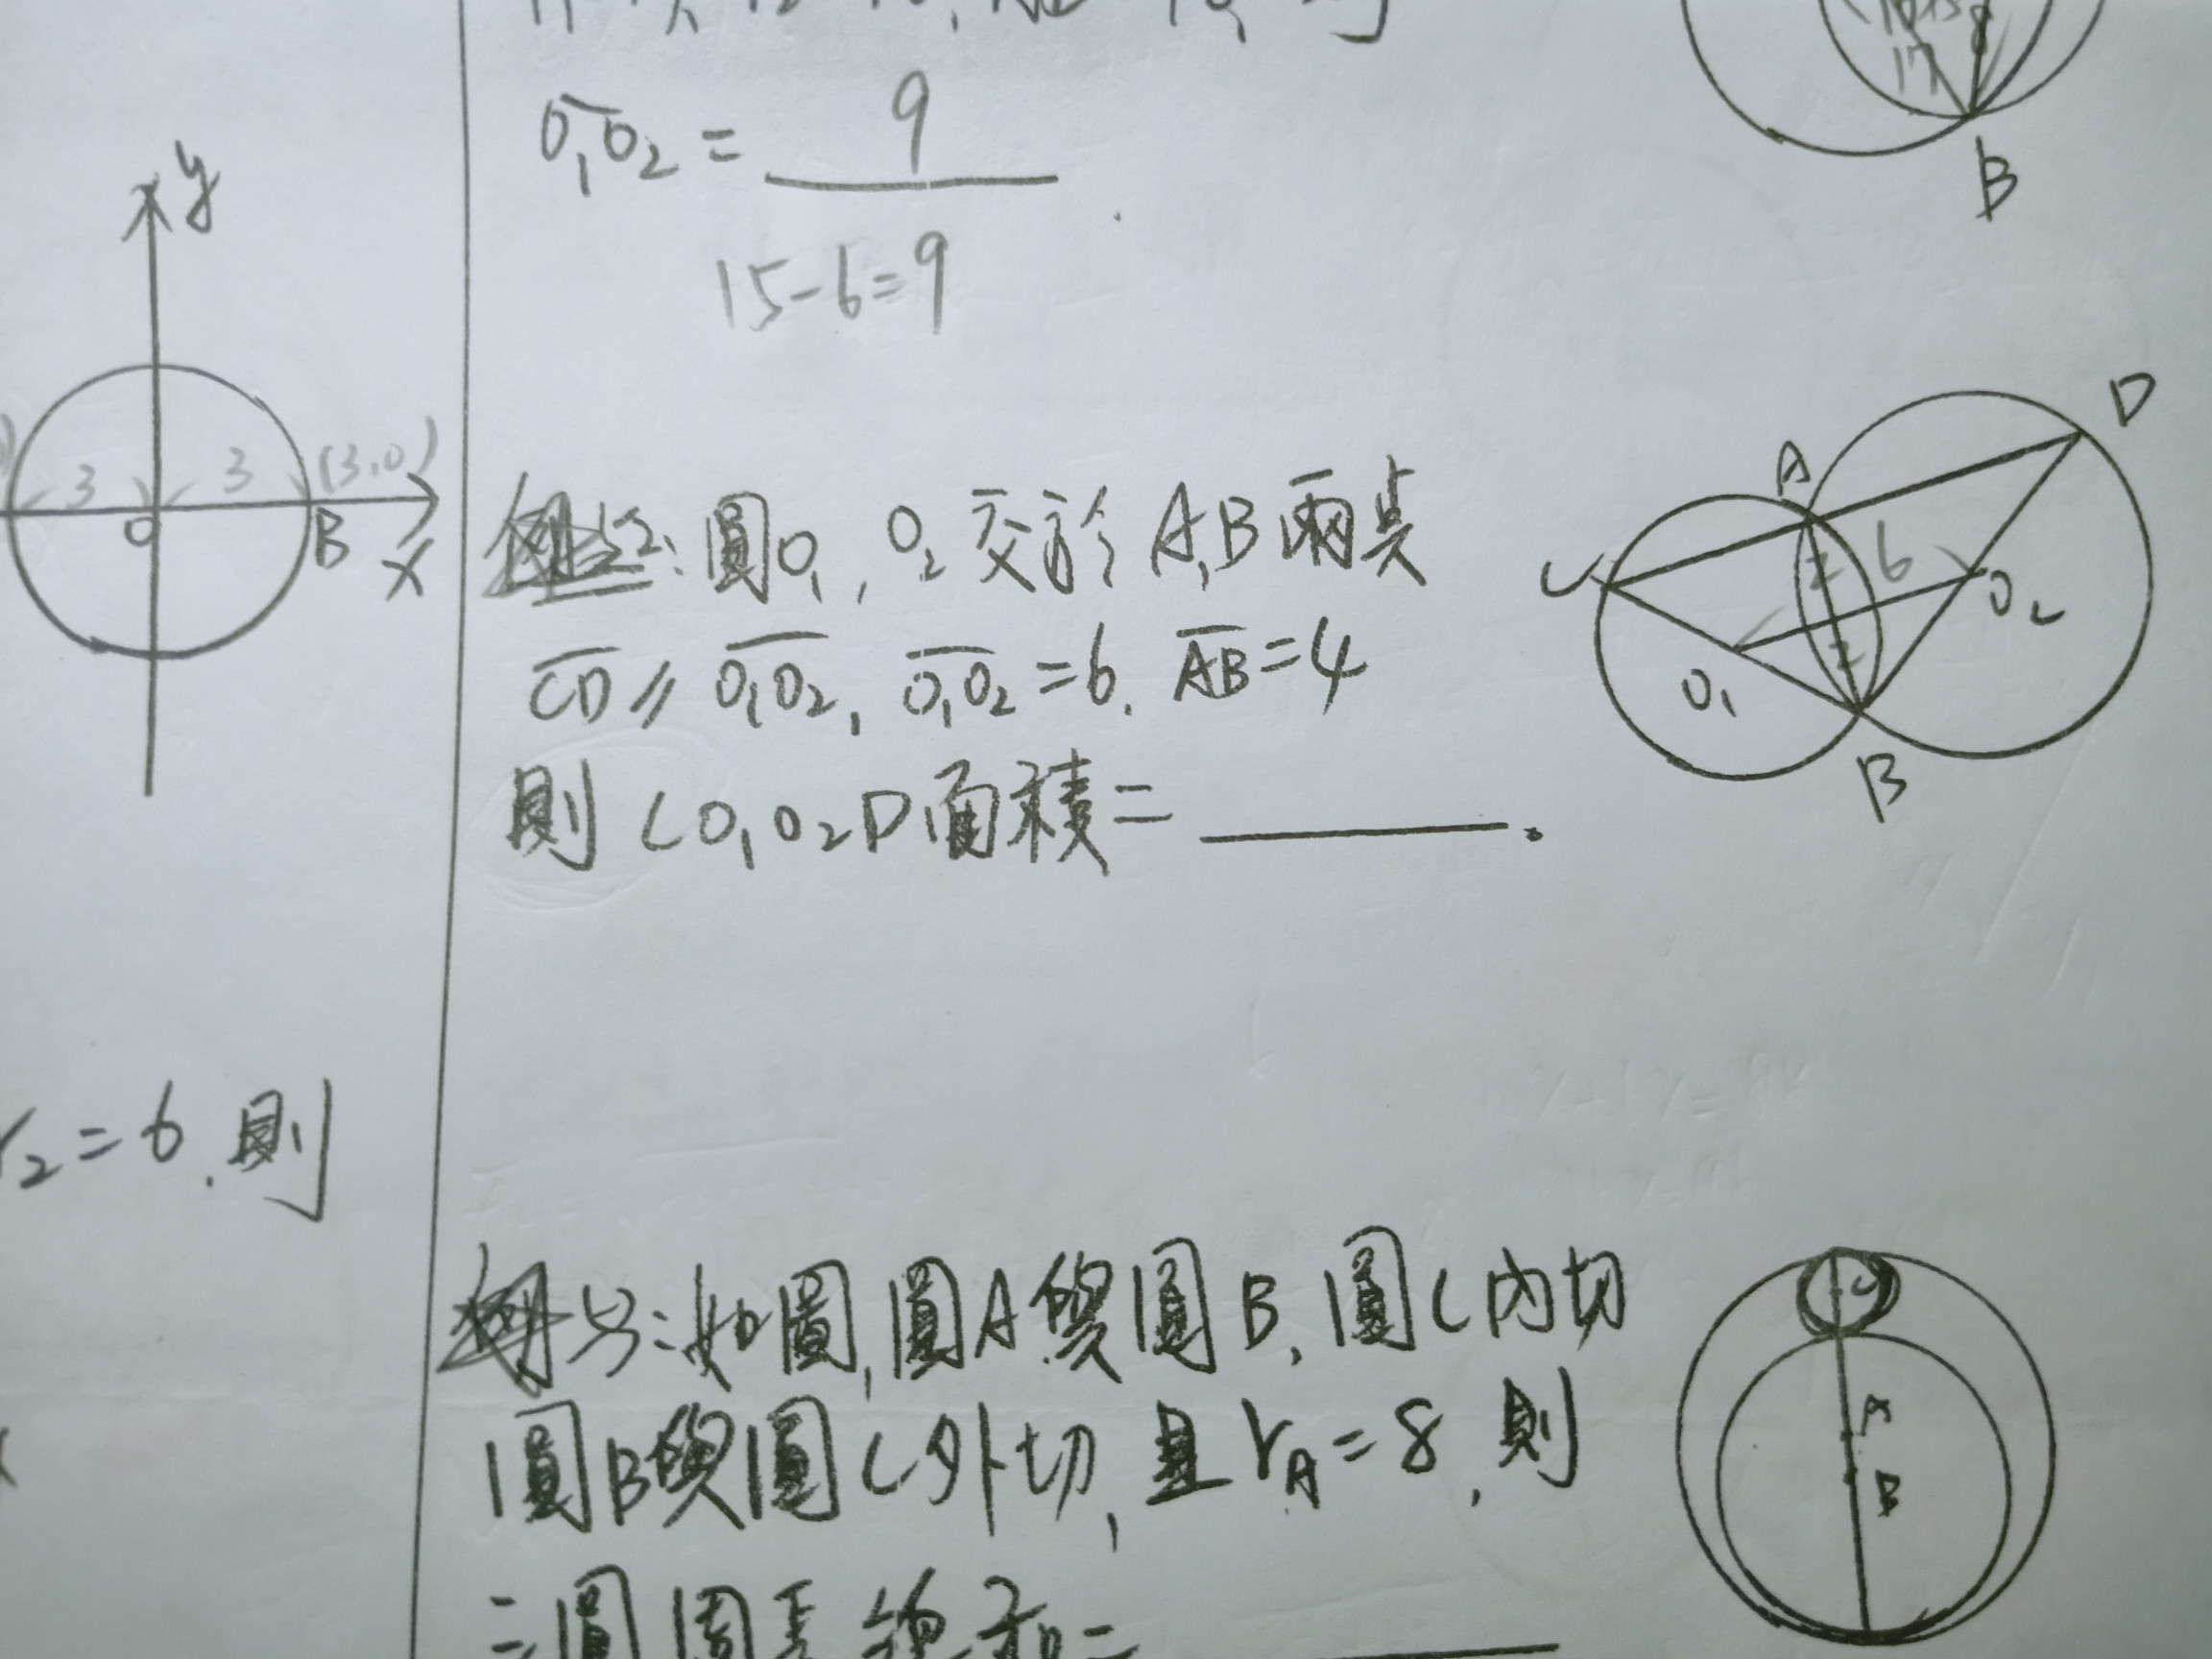 O₁O₂ = 9
15-6=9
B
y
3 3 (3,0)
O B x
圓O₁, O₂ 交於 A,B 兩点
CD // O₁O₂, O₁O₂ = 6. AB = 4
則 CO₁O₂D 面積 = ______.
A D
C 2 6 O₂
O₁ 2
B
r₂ = 6. 則
例5: 如圖, 圓A與圓B, 圓C內切
圓B與圓C外切, 且 r_A = 8, 則
三圓周長總和= ______
C
A
B
17
8